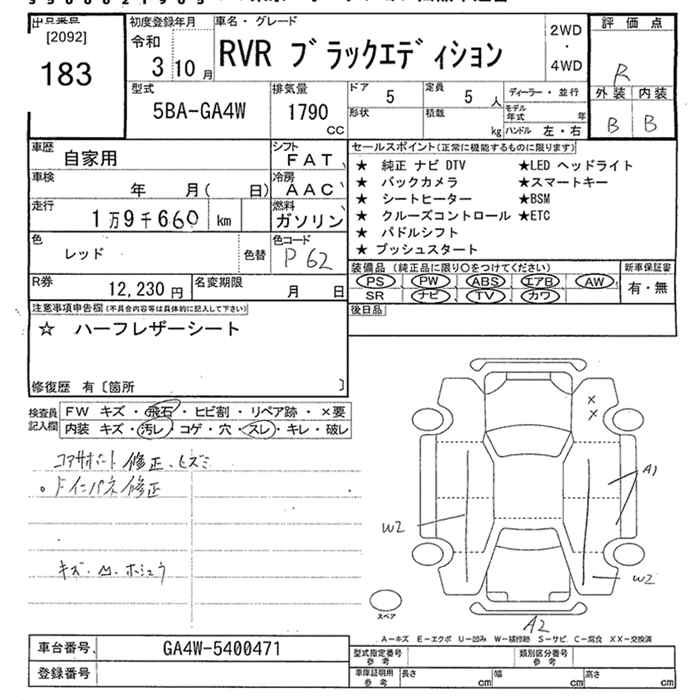 [2092]
183
初度登録年月
令和
3 10月
車名・グレード
RVR ブラックエディション
2WD
・
4WD
評価点
R
外装 内装
B B
型式
5BA-GA4W
排気量
1790
CC
ドア 5
定員 5 人
形状
積載 kg
ディーラー・並行
モデル年式 年
ハンドル 左・右
車歴 自家用
シフト FAT
車検 年 月( 日)
冷房 AAC
走行 1万9千660 km
燃料 ガソリン
色 レッド 色替
色コード P62
R券 12,230円
名変期限 月 日
セールスポイント(正常に機能するものに限ります)
★ 純正 ナビ DTV ★LED ヘッドライト
★ バックカメラ ★スマートキー
★ シートヒーター ★BSM
★ クルーズコントロール ★ETC
★ パドルシフト
★ プッシュスタート
装備品 (純正品に限り○をつけてください)
PS PW ABS エアB AW
SR ナビ TV カワ
新車保証書
有・無
後日品
注意事項申告欄(不具合内容等は具体的に記入して下さい)
☆ ハーフレザーシート
修復歴 有〔箇所 〕
検査員記入欄
FW キズ・飛石・ヒビ割・リペア跡・×要
内装 キズ・汚レ・コゲ・穴・スレ・キレ・破レ
コアサポート修正、ヒズミ
。ドインパネ修正
キズ・凹・ホシュウ
X
X
A1
W2
W2
A2
スペア
A-キズ E-エクボ U-凹み W-補修跡 S-サビ C-腐食 XX-交換済
車台番号 GA4W-5400471
登録番号
型式指定番号 参考
類別区分番号 参考
車庫証明用 参考 長さ cm 幅 cm 高さ cm